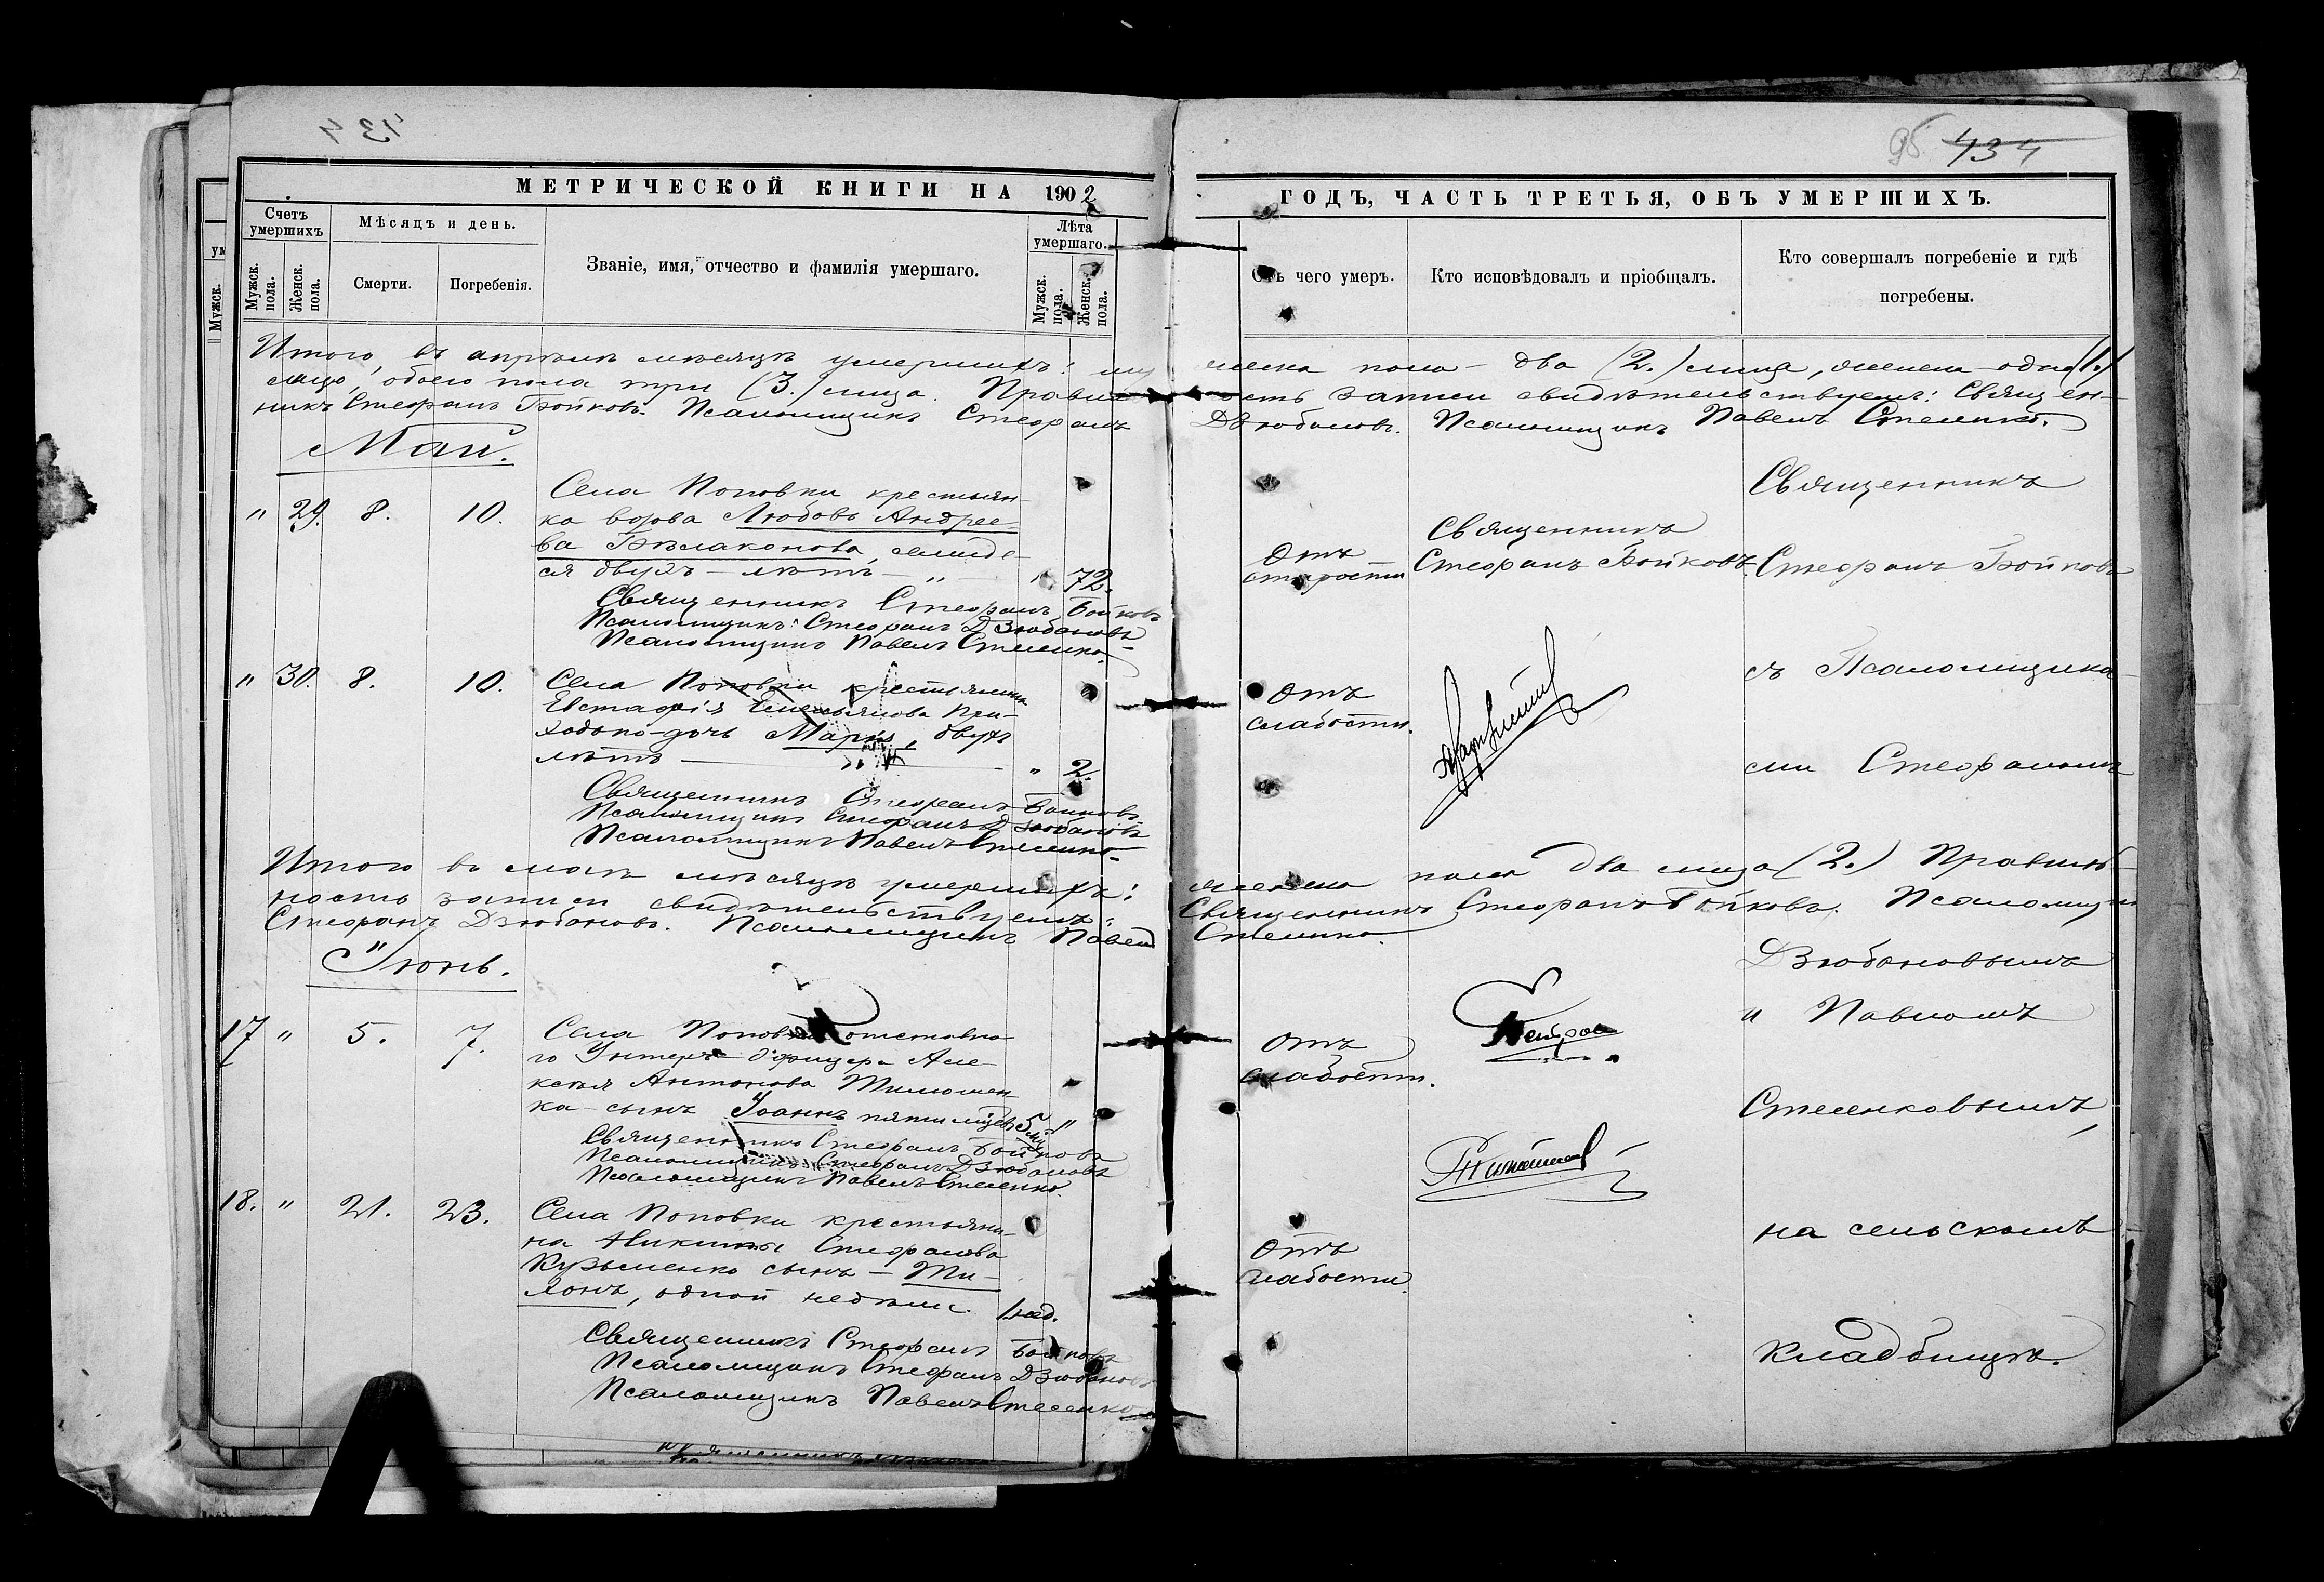 434
95 434
МЕТРИЧЕСКОЙ КНИГИ НА 1902
ГОДЪ, ЧАСТЬ ТРЕТЬЯ, ОБЪ УМЕРШИХЪ.
Счетъ умершихъ
Мужск. пола.
Женск. пола.
Мѣсяцъ и день.
Смерти.
Погребенія.
Званіе, имя, отчество и фамилія умершаго.
Лѣта умершаго.
Мужск. пола.
Женск. пола.
Отъ чего умеръ.
Кто исповѣдовалъ и пріобщалъ.
Кто совершалъ погребеніе и гдѣ
погребены.
Итого, въ апрѣлѣ мѣсяцѣ умершихъ: му жеска пола – два (2.) лица, женска одно (1.)
лицо, обоего пола три (3.) лица. Правиль ность записи свидѣтельствуемъ: Священ-
никъ Стефанъ Бойковъ. Псаломщикъ Стефанъ Дзюбановъ. Псаломщикъ Павелъ
Май.
" 29. 8. 10.
Села Поповки крестьян-
ка вдова Любовь Андрее-
ва Бѣлаконова, семиде-
ся двухъ – лѣтъ – " – " 72.
Священникъ Стефанъ Бойковъ
Псаломщикъ: Стефанъ Дзюбановъ
Псаломщикъ Павелъ
Отъ
старости
Священникъ
Стефанъ Бойковъ.
" 30. 8. 10.
Села Поповки крестьянина
Евстафія Емельянова При-
ходько – дочь Марія, двухъ
лѣтъ – " 2.
Священникъ Стефанъ Бойковъ.
Псаломщикъ Стефанъ Дзюбановъ
Псаломщикъ Павелъ
Отъ
слабости.
Итого въ маѣ мѣсяцѣ умершихъ: женска пола два лица (2.) Правиль-
ность записи свидѣтельствуемъ: Священникъ Стефанъ Бойковъ. Псаломщикъ
Стефанъ Дзюбановъ. Псаломщикъ Павелъ
Іюнь.
17 " 5. 7.
Села Поповки отставно-
го Унтеръ офицера Але-
ксѣя Антонова Тимошен-
ка – сынъ Іоаннъ пяти мѣс. 5 мѣс. "
Священникъ Стефанъ Бойковъ
Псаломщикъ Стефанъ Дзюбановъ
Псаломщикъ Павелъ
Отъ
слабости.
18. " 21. 23.
Села Поповки крестьяни-
на Никиты Стефанова
Кузьменко сынъ – Ти-
хонъ, одной недѣли. 1 нед.
Священникъ Стефанъ Бойковъ
Псаломщикъ Стефанъ Дзюбановъ
Псаломщикъ Павелъ
Отъ
слабости.
Священникъ
Стефанъ Бойковъ
съ Псаломщика-
ми Стефаномъ
Дзюбановымъ
и Павломъ
на сельскомъ
кладбищѣ.